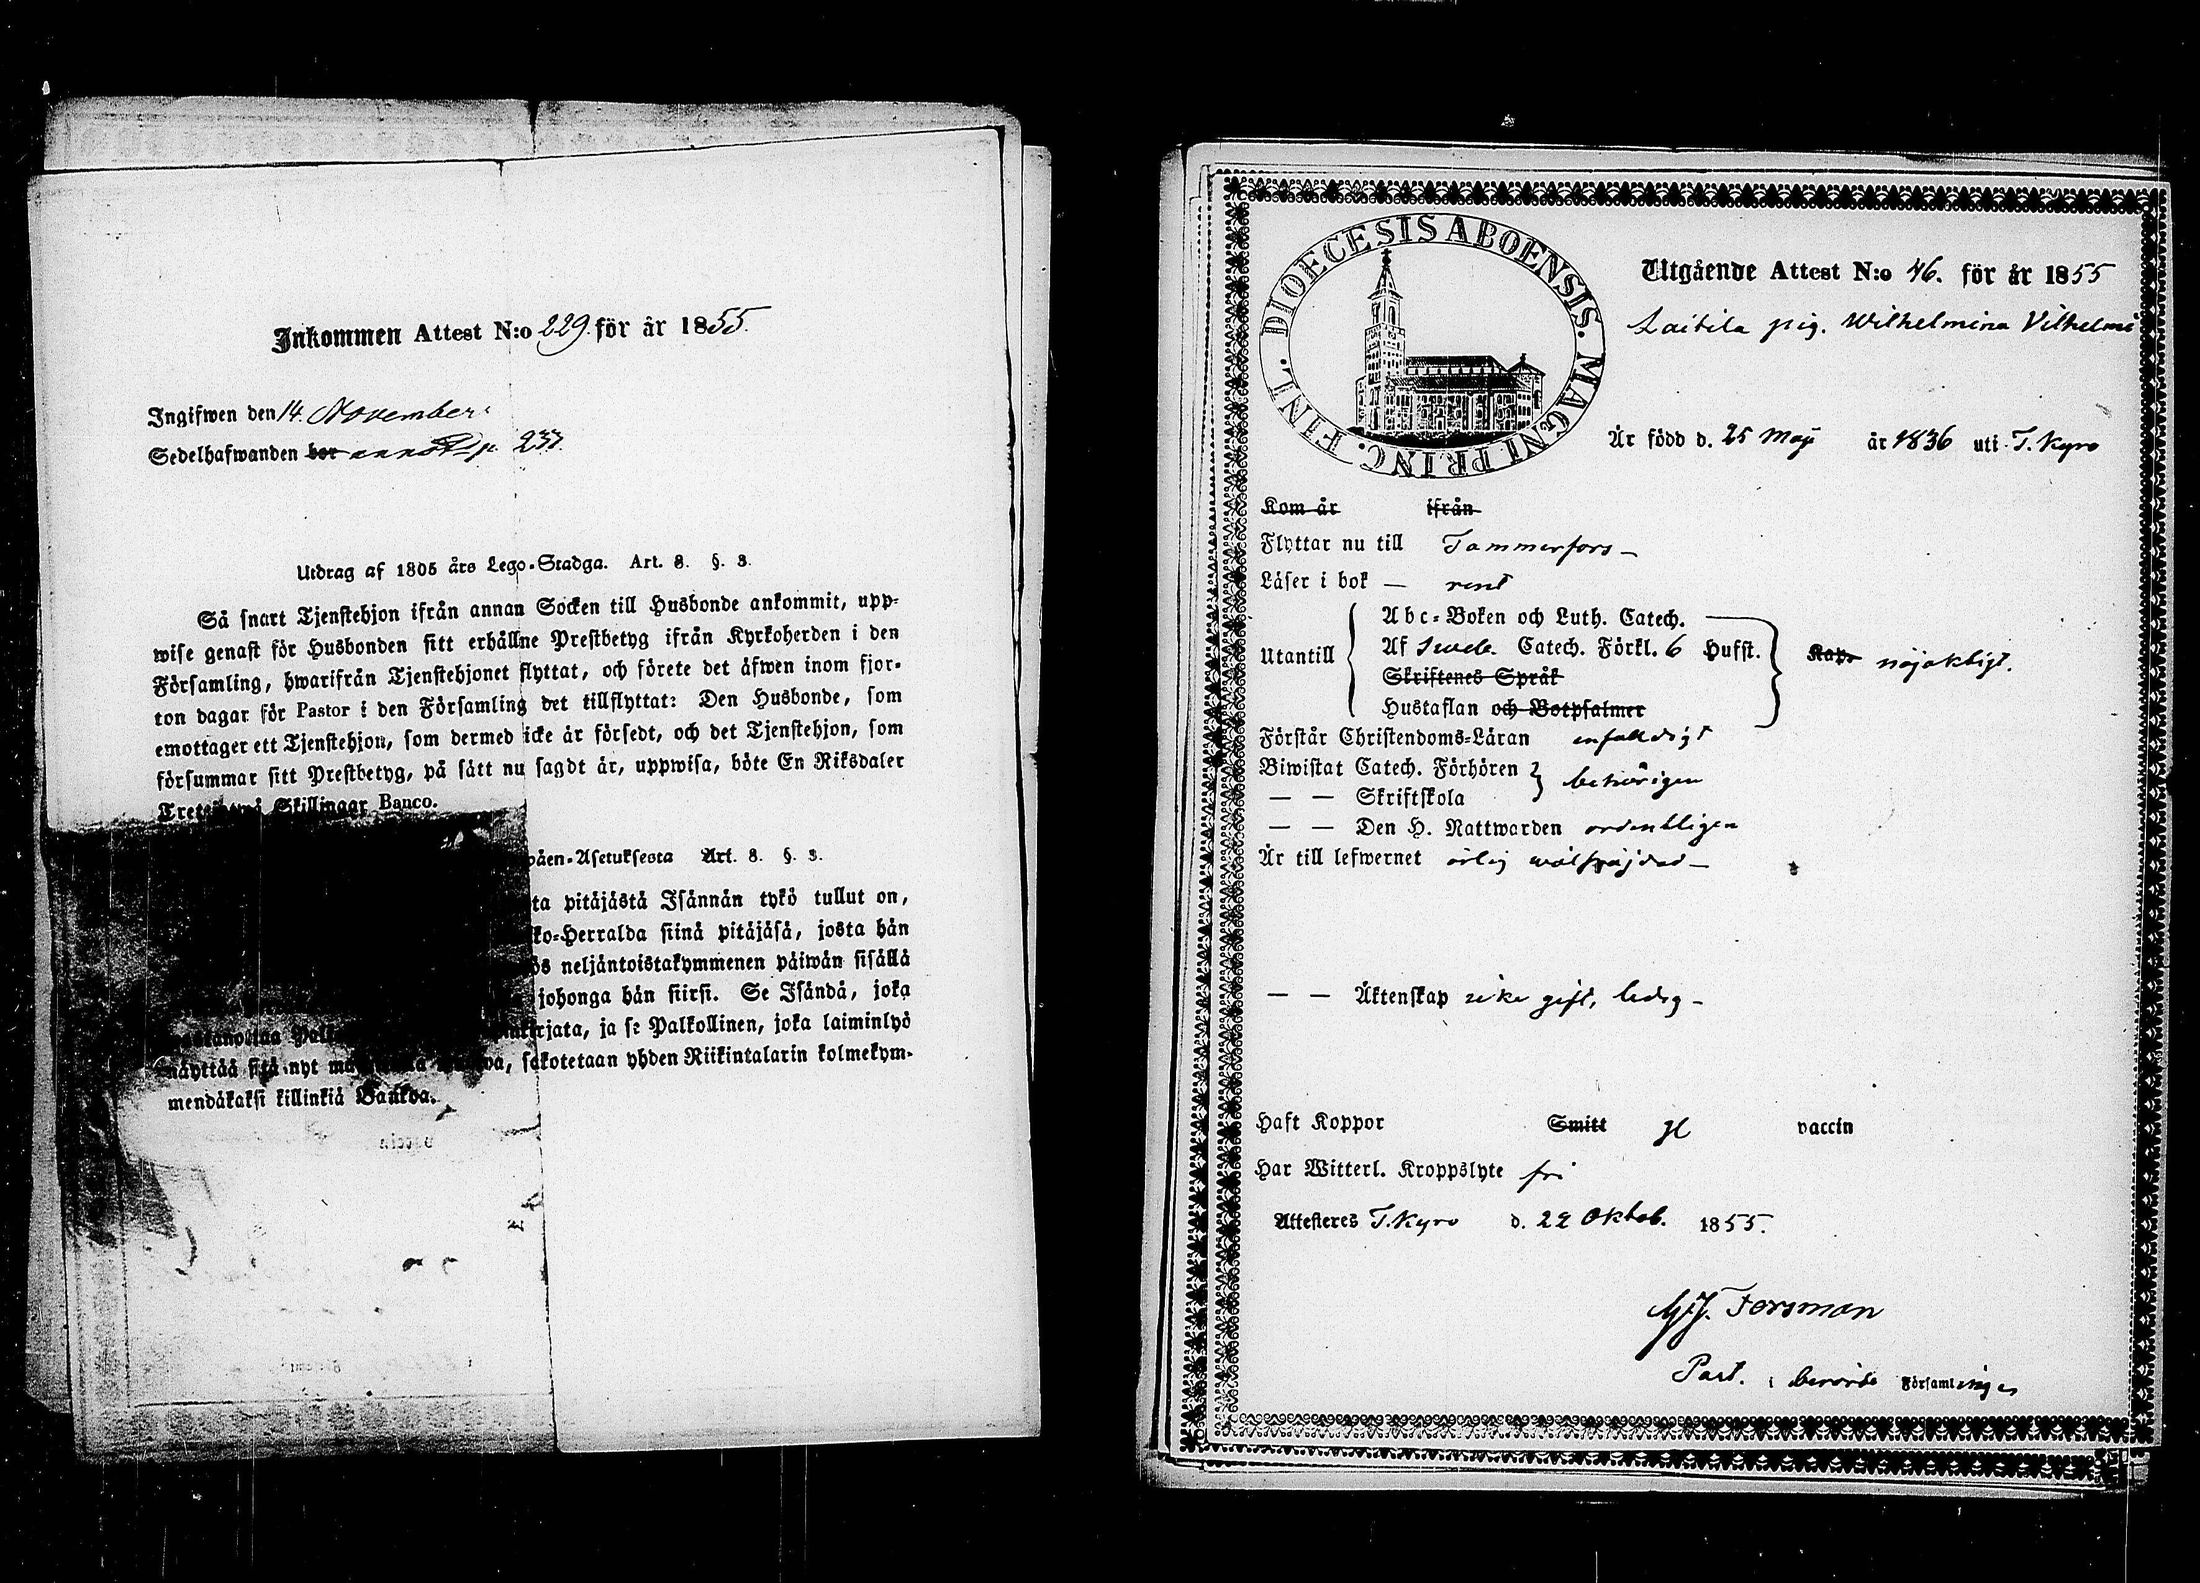 Inkommen Attest N:o 229. för år 1855.
Ingifwen den 14. November.
Sedelhafwanden bor p. 237.
Utdrag af 1805 års Lego-Stadga. Art. 8. §. 3.
Så snart Tjenstehjon ifrån annan Socken till Husbonde ankommit, upp-
wise genast för Husbonden sitt erhållne Prestbetyg ifrån Kyrkoherden i den
Församling, hwarifrån Tjenstehjonet flyttat, och förete det äfwen inom fjor-
ton dagar för Pastor i den Församling det tillflyttat: Den Husbonde, som
emottager ett Tjenstehjon, som dermed icke är försedt, och det Tjenstehjon, som
försummar sitt Prestbetyg, på sätt nu sagdt är, uppwisa, böte En Riksdaler
Skillingar Banco.
påen-Asetuksesta Art. 8. §. 3.
ta pitäjästä Isännän tykö tullut on,
ko-Herralda siinä pitäjäsä, josta hän
ös neljäntoistakymmenen päiwän sisällä
johonga hän siirsi. Se Isändä, joka
kirjata, ja se Palkollinen, joka laiminlyö
näyttää sitä nyt sakotetaan yhden Riikintalarin kolmekym-
mendäkaksi killinkiä Bankoa.
DIOECESIS ABOENSIS. MAGNI PRINC. FINL.
Utgående Attest N:o 46. för år 1855
Laitila pig. Wilhelmina Vilhelms
Är född d. 25 Maji år 1836 uti T. Kyro
Kom år ifrån
Flyttar nu till Tammerfors —
Läser i bok — rent
Utantill
Abc-Boken och Luth. Catech.
Af Sweb. Catech. Förkl. 6 Hufst.
Skriftenes Språk
Hustaflan och Botpsalmer
Kap. nöjaktigt.
Förstår Christendoms-Läran enfaldigt
Biwistat Catech. Förhören
— — Skriftskola
behörigen
— — Den H. Nattwarden ordentligen
Är till lefwernet ärlig wälfräjdad —
— — Äktenskap icke gift, ledig —
Haft Koppor Smitt vaccin
Har Witterl. Kroppslyte fri
Attesteres T. Kyro d. 22 Oktob. 1855.
Forsman
Past. i berörde Församlingen